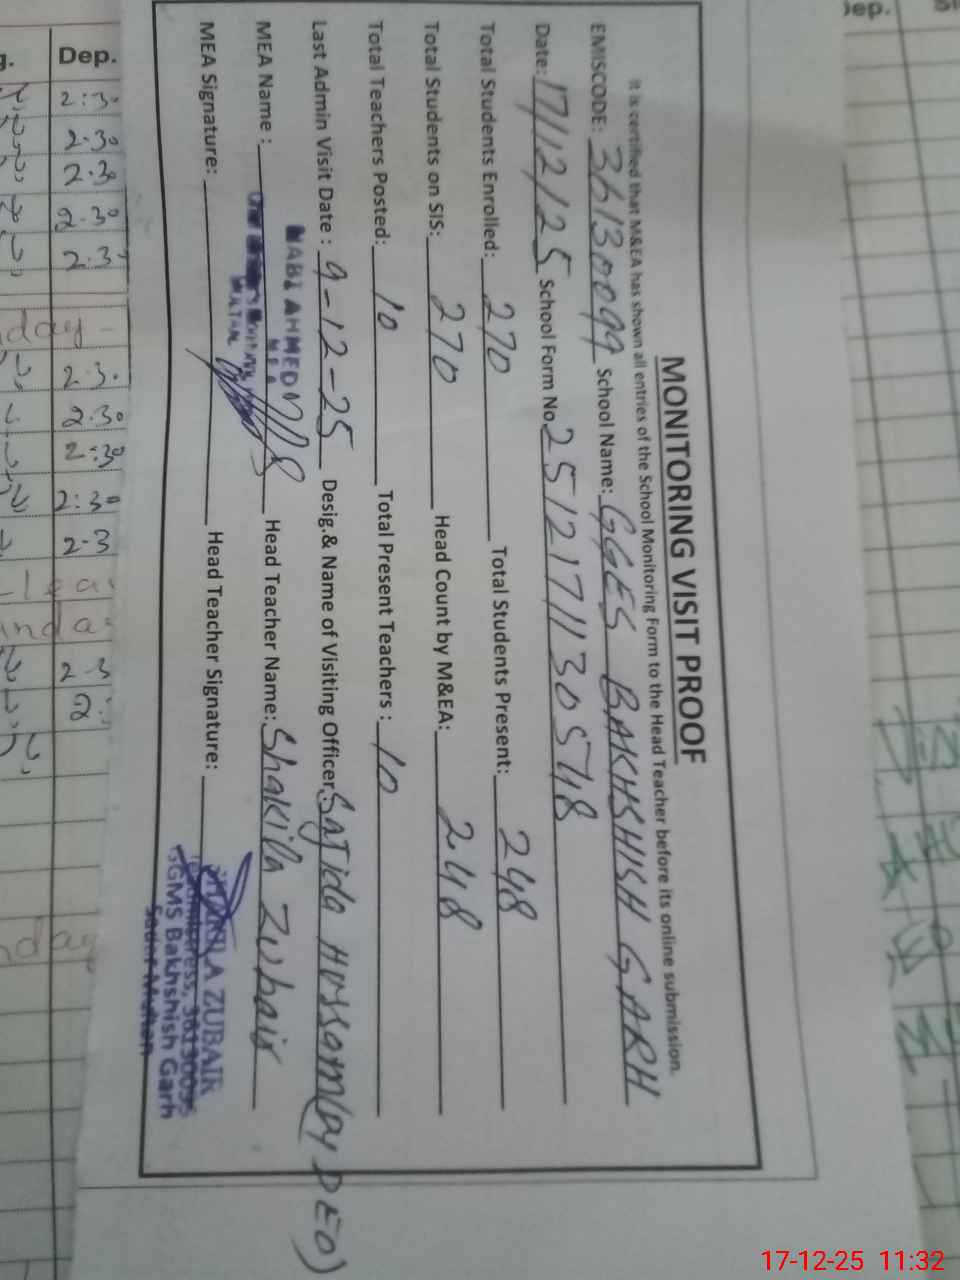 MONITORING VISIT PROOF
It is certified that M&EA has shown all entries of the School Monitoring Form to the Head Teacher before its online submission.
EMISCODE: 36130099 School Name: GGES BAKHSHISH GARH
Date: 17/12/25 School Form No. 2512171130548
Total Students Enrolled: 270 Total Students Present: 248
Total Students on SIS: 270 Head Count by M&EA: 248
Total Teachers Posted: 10 Total Present Teachers : 10
Last Admin Visit Date : 9-12-25 Desig.& Name of Visiting Officer: Sajida Hussam (Dy DEO)
MEA Name : NABI AHMED Head Teacher Name: Shakila Zubair
M E A
MEA Signature: Head Teacher Signature:
SHAKILA ZUBAIR
GGMS Bakhshish Garh
Dep.
2:30
2.30
2.30
2.30
2.3
2.3.
2.30
2:30
2:30
2.3
2.3
2
Dep.
17-12-25 11:32